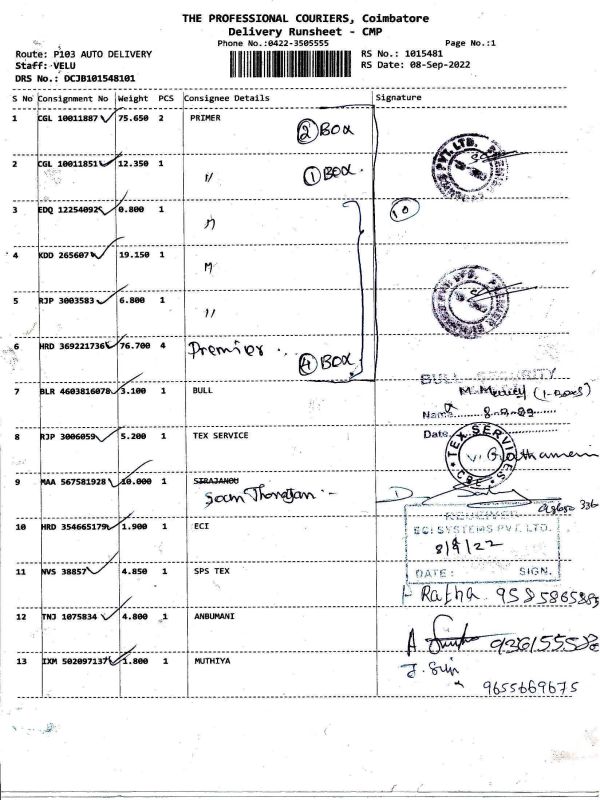 THE PROFESSIONAL COURIERS, Coimbatore
Delivery Runsheet - CMP
Phone No.:0422-3505555 Page No.:1
Route: P103 AUTO DELIVERY RS No.: 1015481
Staff: VELU RS Date: 08-Sep-2022
DRS No.: DCJB101548101
S No Consignment No Weight PCS Consignee Details Signature
1 CGL 10011887 75.650 2 PRIMER
2 BOX
2 CGL 10011851 12.350 1 〃 1 BOX.
3 EDQ 12254092 0.800 1 〃 10
4 KDD 265607 19.150 1 〃
5 RJP 3003583 6.800 1 〃
6 HRD 369221736 76.700 4 Premier
4 BOX
BULL SECURITY
7 BLR 4603816078 3.100 1 BULL
Name
8 RJP 3006059 5.200 1 TEX SERVICE Date
TEX SERVICES
CBE
9 MAA 567581928 10.000 1 STRAJANOU
RECEIVED
10 HRD 354665179 1.900 1 ECI ECI SYSTEMS PVT. LTD.
8/9/22
11 NVS 38857 4.850 1 SPS TEX DATE: SIGN.
Ratha 9585865885
12 TNJ 1075834 4.800 1 ANBUMANI
13 IXM 502097137 1.800 1 MUTHIYA
9655669675